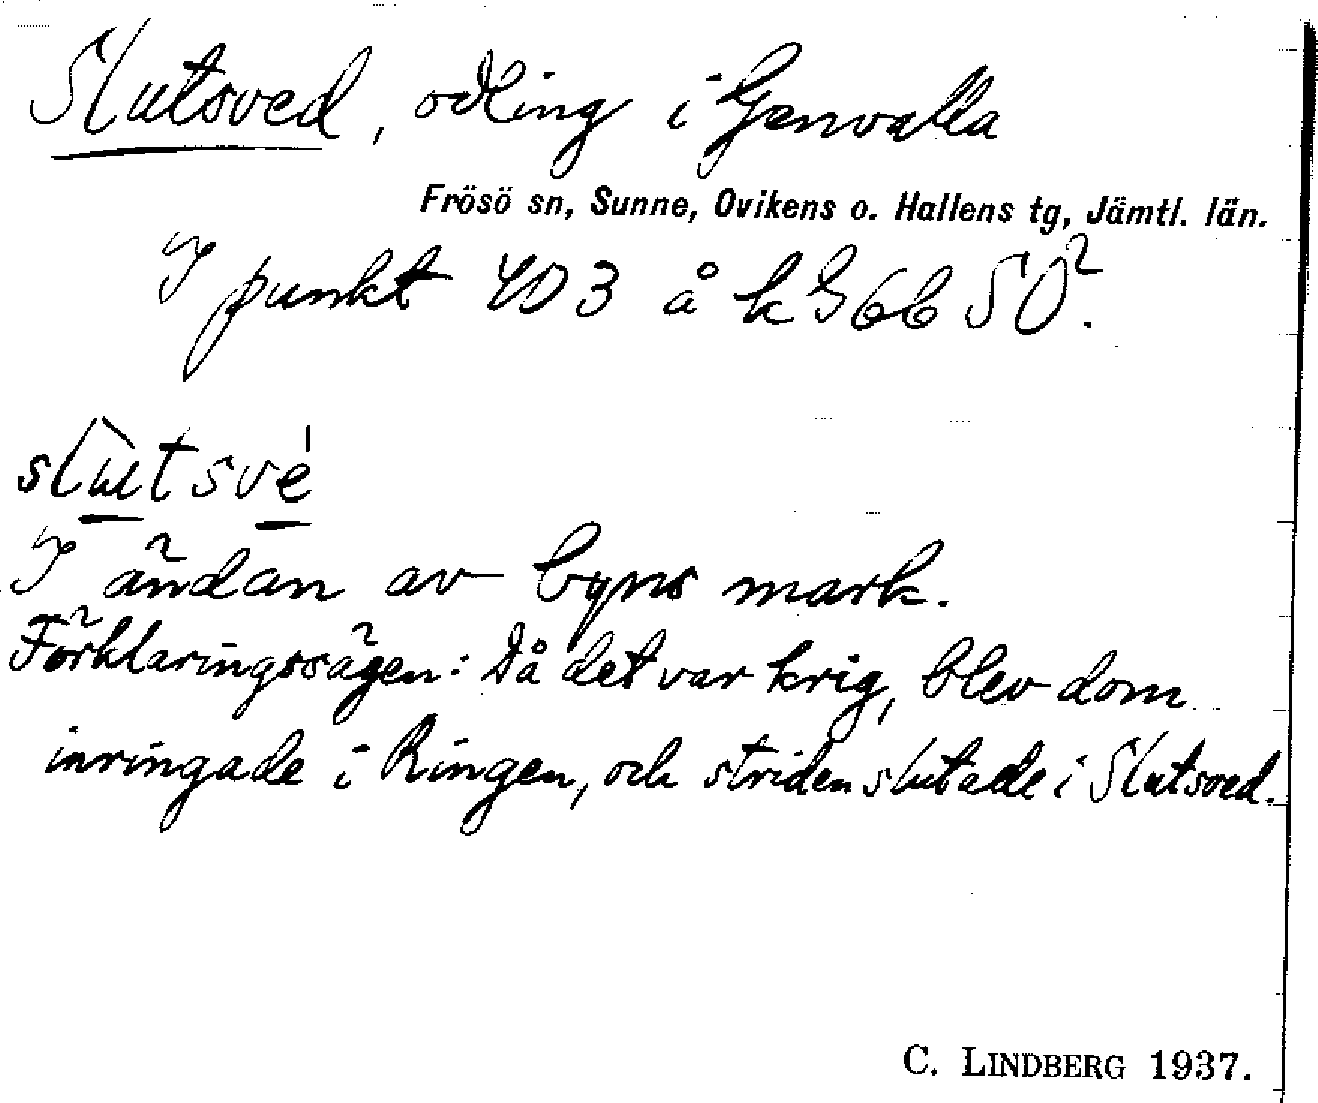 Slutsved, odling i Genvalla
Frösö sn, Sunne, Ovikens o. Hallens tg, Jämtl. län.
I punkt 403 å k G66 SÖ.
slutsvé
I ändan av byns mark.
Förklaringssägen: Då det var krig, blev dom
inringade i Ringen, och striden slutade i Slutsved.
C. LINDBERG 1937.